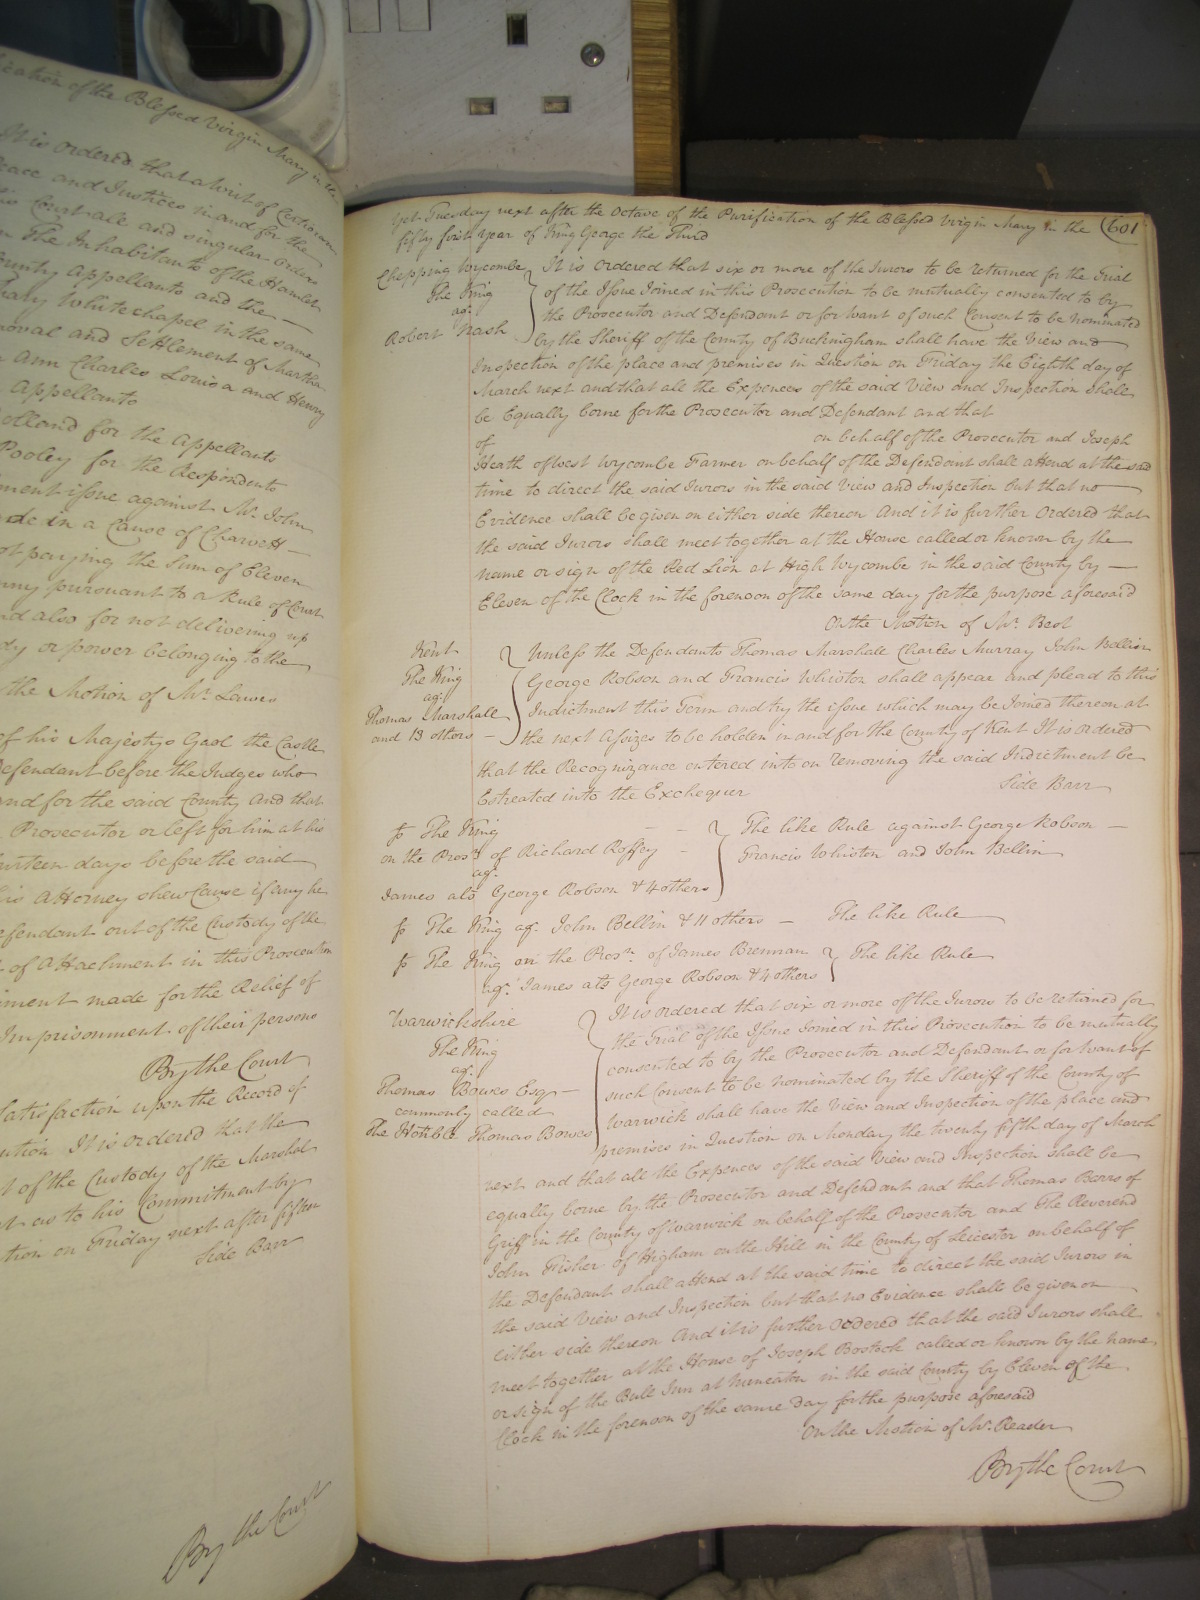 ication of the Blessed Virgin Mary in the
It is Ordered that a Writ of Certiorari
Peace and Justices in and for the
is Court all and singular Orders
n The Inhabitants of the Hamlet
County Appellants and the
Mary Whitechapel in the same
moval and Settlement of Martha
Ann Charles Louisa and Henry
Appellants
olland for the Appellants
Pooley for the Respondents
ment issue against Mr. John
de in a Cause of Charvett
ot paying the Sum of Eleven
pursuant to a Rule of Court
nd also for not delivering up
dy or power belonging to the
the Motion of Mr. Lawes
of his Majestys Gaol the Castle
Defendant before the Judges who
and for the said County and that
Prosecutor or left for him at his
urteen days before the said
is Attorney shew Cause if any he
efendant out of the Custody of the
of Attachment in this Prosecution
iment made for the Relief of
Imprisonment of their persons
By the Court
Satisfaction upon the Record of
ution It is ordered that the
t of the Custody of the Marshal
as to his Commitment by
tion on Friday next after fifteen
Side Barr
By the Court
Yet Tuesday next after the Octave of the Purification of the Blessed Virgin Mary in the 601
fifty first year of King George the Third
Chepping Wycombe
The King
agt.
Robert Nash
It is Ordered that six or more of the Jurors to be returned for the Trial
of the Issue Joined in this Prosecution to be mutually consented to by
the Prosecutor and Defendant or for want of such Consent to be nominated
by the Sheriff of the County of Buckingham shall have the View and
Inspection of the place and premises in Question on Friday the Eighth day of
March next and that all the Expences of the said View and Inspection shall
be Equally borne for the Prosecutor and Defendant and that
of on behalf of the Prosecutor and Joseph
Heath of West Wycombe Farmer on behalf of the Defendant shall attend at the said
time to direct the said Jurors in the said View and Inspection but that no
Evidence shall be given on either side thereon And it is further Ordered that
the said Jurors shall meet together at the House called or known by the
name or sign of the Red Lion at High Wycombe in the said County by
Eleven of the Clock in the forenoon of the same day for the purpose aforesaid
On the Motion of Mr. Best
Kent
The King
agt.
Thomas Marshall
and 13 others
Unless the Defendants Thomas Marshall Charles Murray John Bellin
George Robson and Francis Whiston shall appear and plead to this
Indictment this Term and try the issue which may be Joined thereon at
the next Assizes to be holden in and for the County of Kent It is ordered
that the Recognizance entered into on removing the said Indictment be
Estreated into the Exchequer Side Barr
The King
on the Prosn. of Richard Roffey
agt.
James als George Robson & 4 others
The like Rule against George Robson
Francis Whiston and John Bellin
The King agt. John Bellin & 11 others The like Rule
The King on the Prosn. of James Brennan
agt. James als George Robson & 4 others
The like Rule
Warwickshire
The King
agt.
Thomas Bowes Esq
commonly called
The Honble. Thomas Bowes
It is ordered that six or more of the Jurors to be returned for
the Trial of the Issue Joined in this Prosecution to be mutually
consented to by the Prosecutor and Defendant or for want of
such Consent to be nominated by the Sheriff of the County of
Warwick shall have the View and Inspection of the place and
premises in Question on Monday the twenty fifth day of March
next and that all the Expences of the said View and Inspection shall be
equally borne by the Prosecutor and Defendant and that Thomas Barrs of
Griff in the County of Warwick on behalf of the Prosecutor and The Reverend
John Fisher of Higham on the Hill in the County of Leicester on behalf of
the Defendant shall attend at the said time to direct the said Jurors in
the said View and Inspection but that no Evidence shall be given on
either side thereon And it is further Ordered that the said Jurors shall
meet together at the House of Joseph Bostock called or known by the name
or sign of the Bull Inn at Nuneaton in the said County by Eleven of the
Clock in the forenoon of the same Day for the purpose aforesaid
On the Motion of Mr. Reader
By the Court